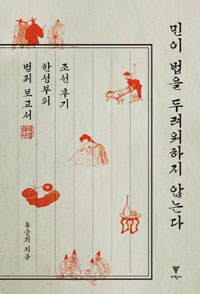 민이 법을 두려워하지 않는다
조선 후기
한성부의
범죄 보고서
유승희 지음